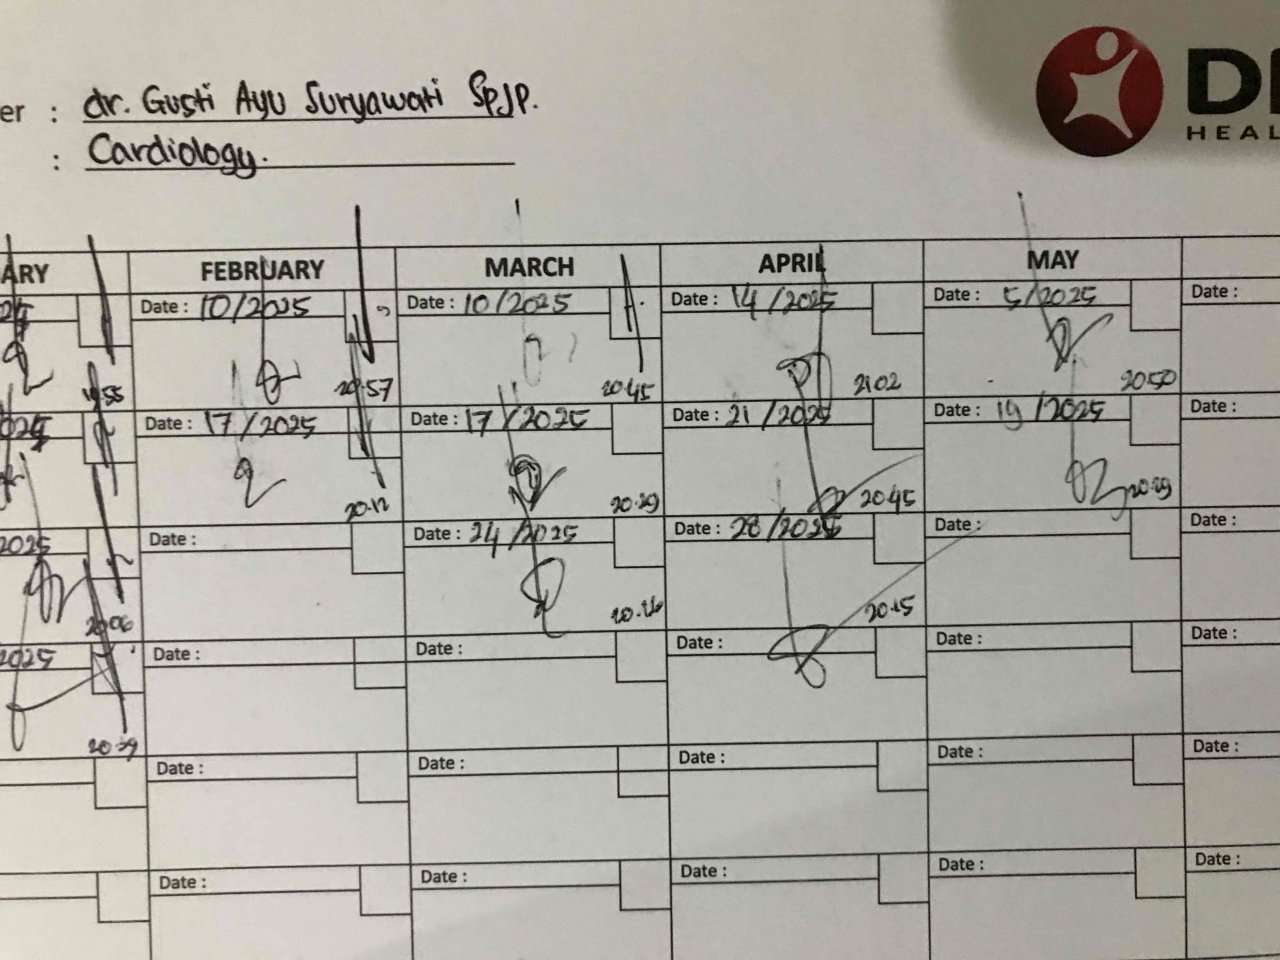 er : dr. Gusti Ayu Suryawati SpJP.
: Cardiology.
HEAL
ARY FEBRUARY MARCH APRIL MAY
Date : 10/2025 Date : 10/2025 Date : 14/2025 Date : 5/2025 Date :
19.55 20.57 20.45 21.02 20.50
Date : 17/2025 Date : 17/2025 Date : 21/2025 Date : 19/2025 Date :
20.12 20.29 20.45 20.29
2025 Date : Date : 24/2025 Date : 28/2025 Date : Date :
20.06 20.15
2025 Date : Date : Date : Date : Date :
20.29
Date : Date : Date : Date : Date :
Date : Date : Date : Date : Date :